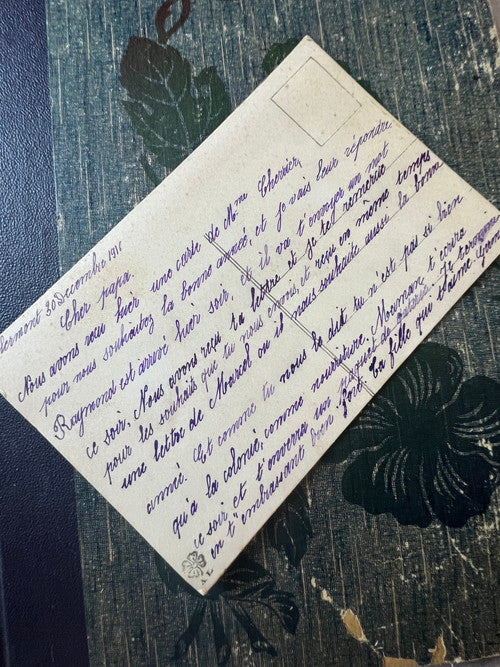 Clermont 30 Decembre 191
Cher papa.
Nous avons reçu hier une carte de Mme Cherrier,
pour nous souhaitez la bonne année et je vais leur répondre
Raymond est arrivé hier soir, et il va t'envoyer un mot
ce soir. Nous avons reçu ta lettre et je te remercie
pour les souhaits que tu nous envois et reçu en même temps
une lettre de Marcel ou il nous souhaite aussi la bonne
année. Et comme tu nous le dit tu n'est pas si bien
qu'à la colonie, comme nourriture. Maman t'écrira
ce soir et t'enverra un paquet de Je termine
en t'embrassant bien fort. Ta fille qui t'aime
A. L.